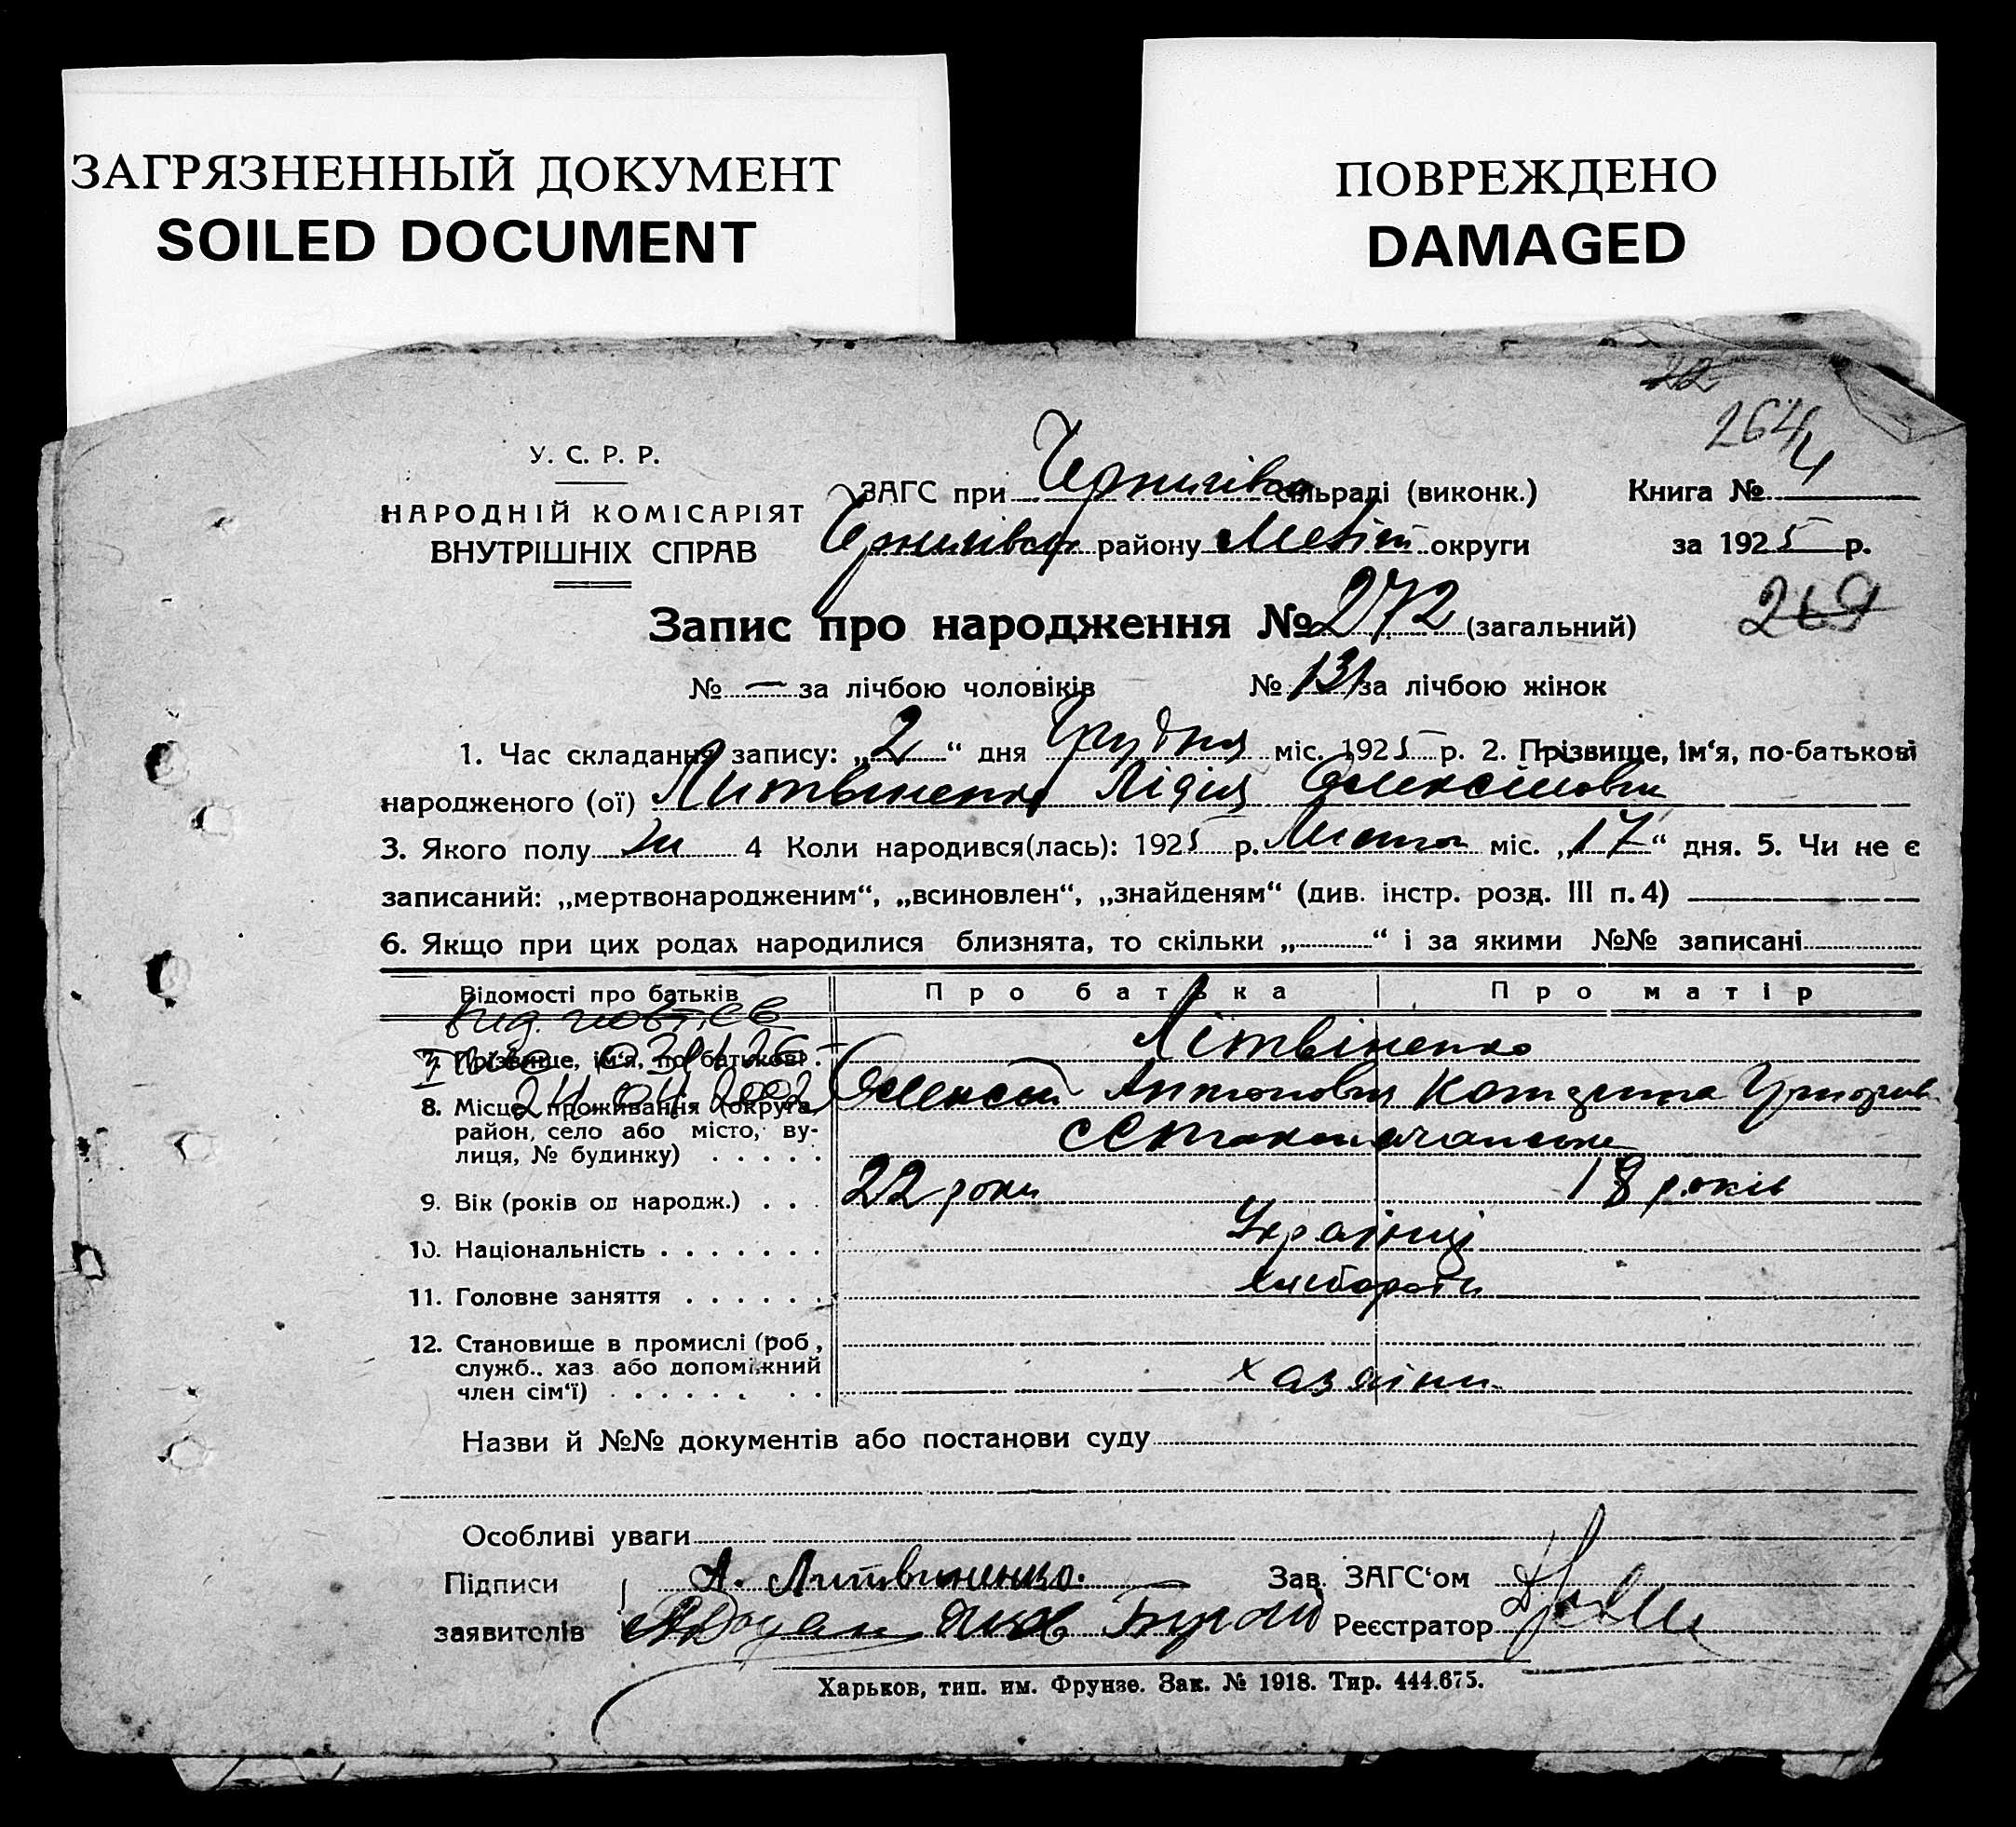 ЗАГРЯЗНЕННЫЙ ДОКУМЕНТ
SOILED DOCUMENT
ПОВРЕЖДЕНО
DAMAGED
22
264
У. С. Р. Р.
НАРОДНІЙ КОМІСАРІЯТ
ВНУТРІШНІХ СПРАВ
ЗАГС при сільраді (виконк.) Книга № 4
району округи за 1925 р.
Запис про народження № 272 (загальний) 269
№ — за лічбою чоловіків № 131 за лічбою жінок
1. Час складання запису: „2“ дня Грудня міс. 1925 р. 2. Прізвище, ім‘я, по-батькові
народженого (ої) Литвіненко Лідія Олексіївна
3. Якого полу ж 4 Коли народився(лась): 1925 р. Листоп міс. „17“ дня. 5. Чи не є
записаний: „мертвонародженим“, „всиновлен“, „знайденям“ (див. інстр. розд. III п. 4)
6. Якщо при цих родах народилися близнята, то скільки „ “ і за якими №№ записані
Відомості про батьків Про батька Про матір
7. Прізвище, ім‘я, по батькові Літвіненко
24 04 2002 Олексій Антонович Катерина Григорів
8. Місце проживання (округа,
район, село або місто, ву-
лиця, № будинку)
9. Вік (років од народж.) 22 роки 18 років
10. Національність Українці
11. Головне заняття хлібороби
12. Становище в промислі (роб,
служб., хаз. або допоміжний
член сім‘ї) хазаіни
Назви й №№ документів або постанови суду
Особливі уваги
Підписи А. Литвиненко. Зав. ЗАГС‘ом
заявителів Реєстратор
Харьков, тип. им. Фрунзе. Зак. № 1918. Тир. 444.675.